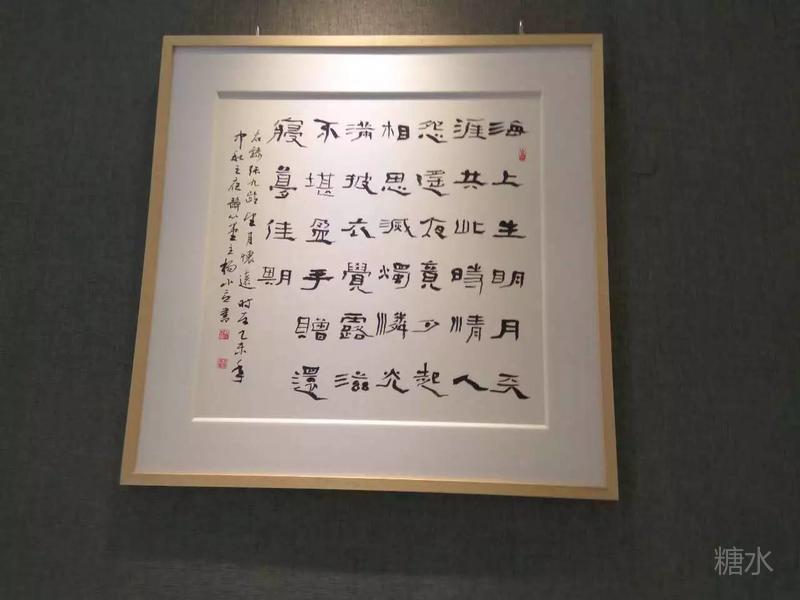 海上生明月天
涯共此時情人
怨遥夜竟夕起
相思滅燭憐光
滿披衣覺露滋
不堪盈手贈還
寢夢佳期
右錄张九龄望月懷遠时在乙未年
中秋之夜
糖水